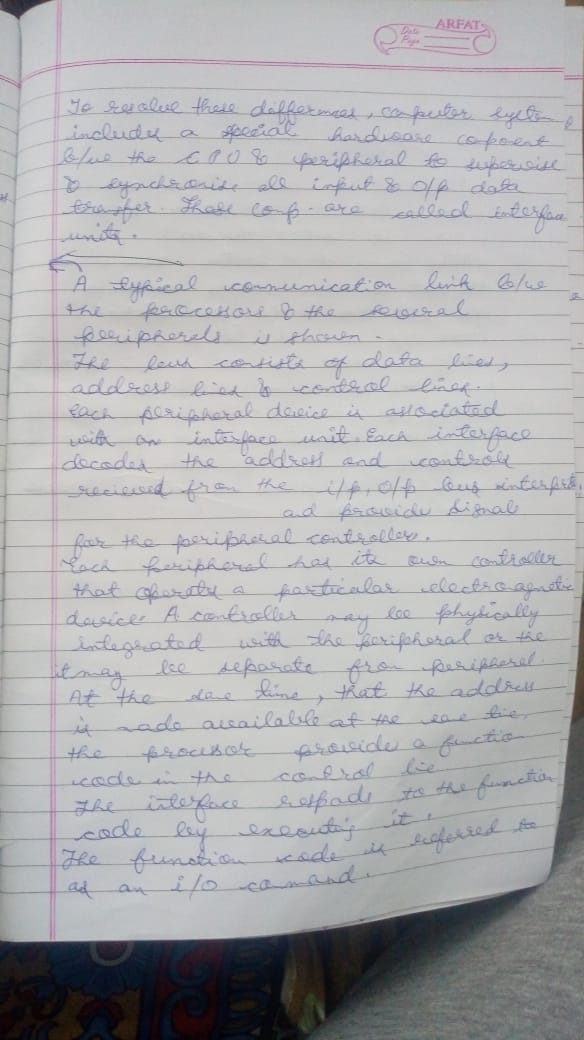 ARFAT
Date
Page
To resolve these differences, computer system
includes a special hardware coponent
b/w the CPU & peripheral to supervise
& synchronise all input & O/p data
transfer. These comp. are called interface
units.
A typical communication link b/w
the processors & the several
peripherals is shown.
The bus consists of data lines,
address lines & control lines.
Each peripheral device is associated
with an interface unit. Each interface
decodes the address and controls
recieved from the i/p, O/p bus interprets,
ad provide signals
for the peripheral controller.
Each peripheral has its own controller
that operates a particular electroagnetic
device. A controller may be physically
integrated with the peripheral or the
it may be separate from peripheral.
At the sae time, that the address
is made available at the sae tie,
the processor provide a function
code in the control lie
The interface respods to the function
code by executig it.
The function code is referred to
as an i/o command.